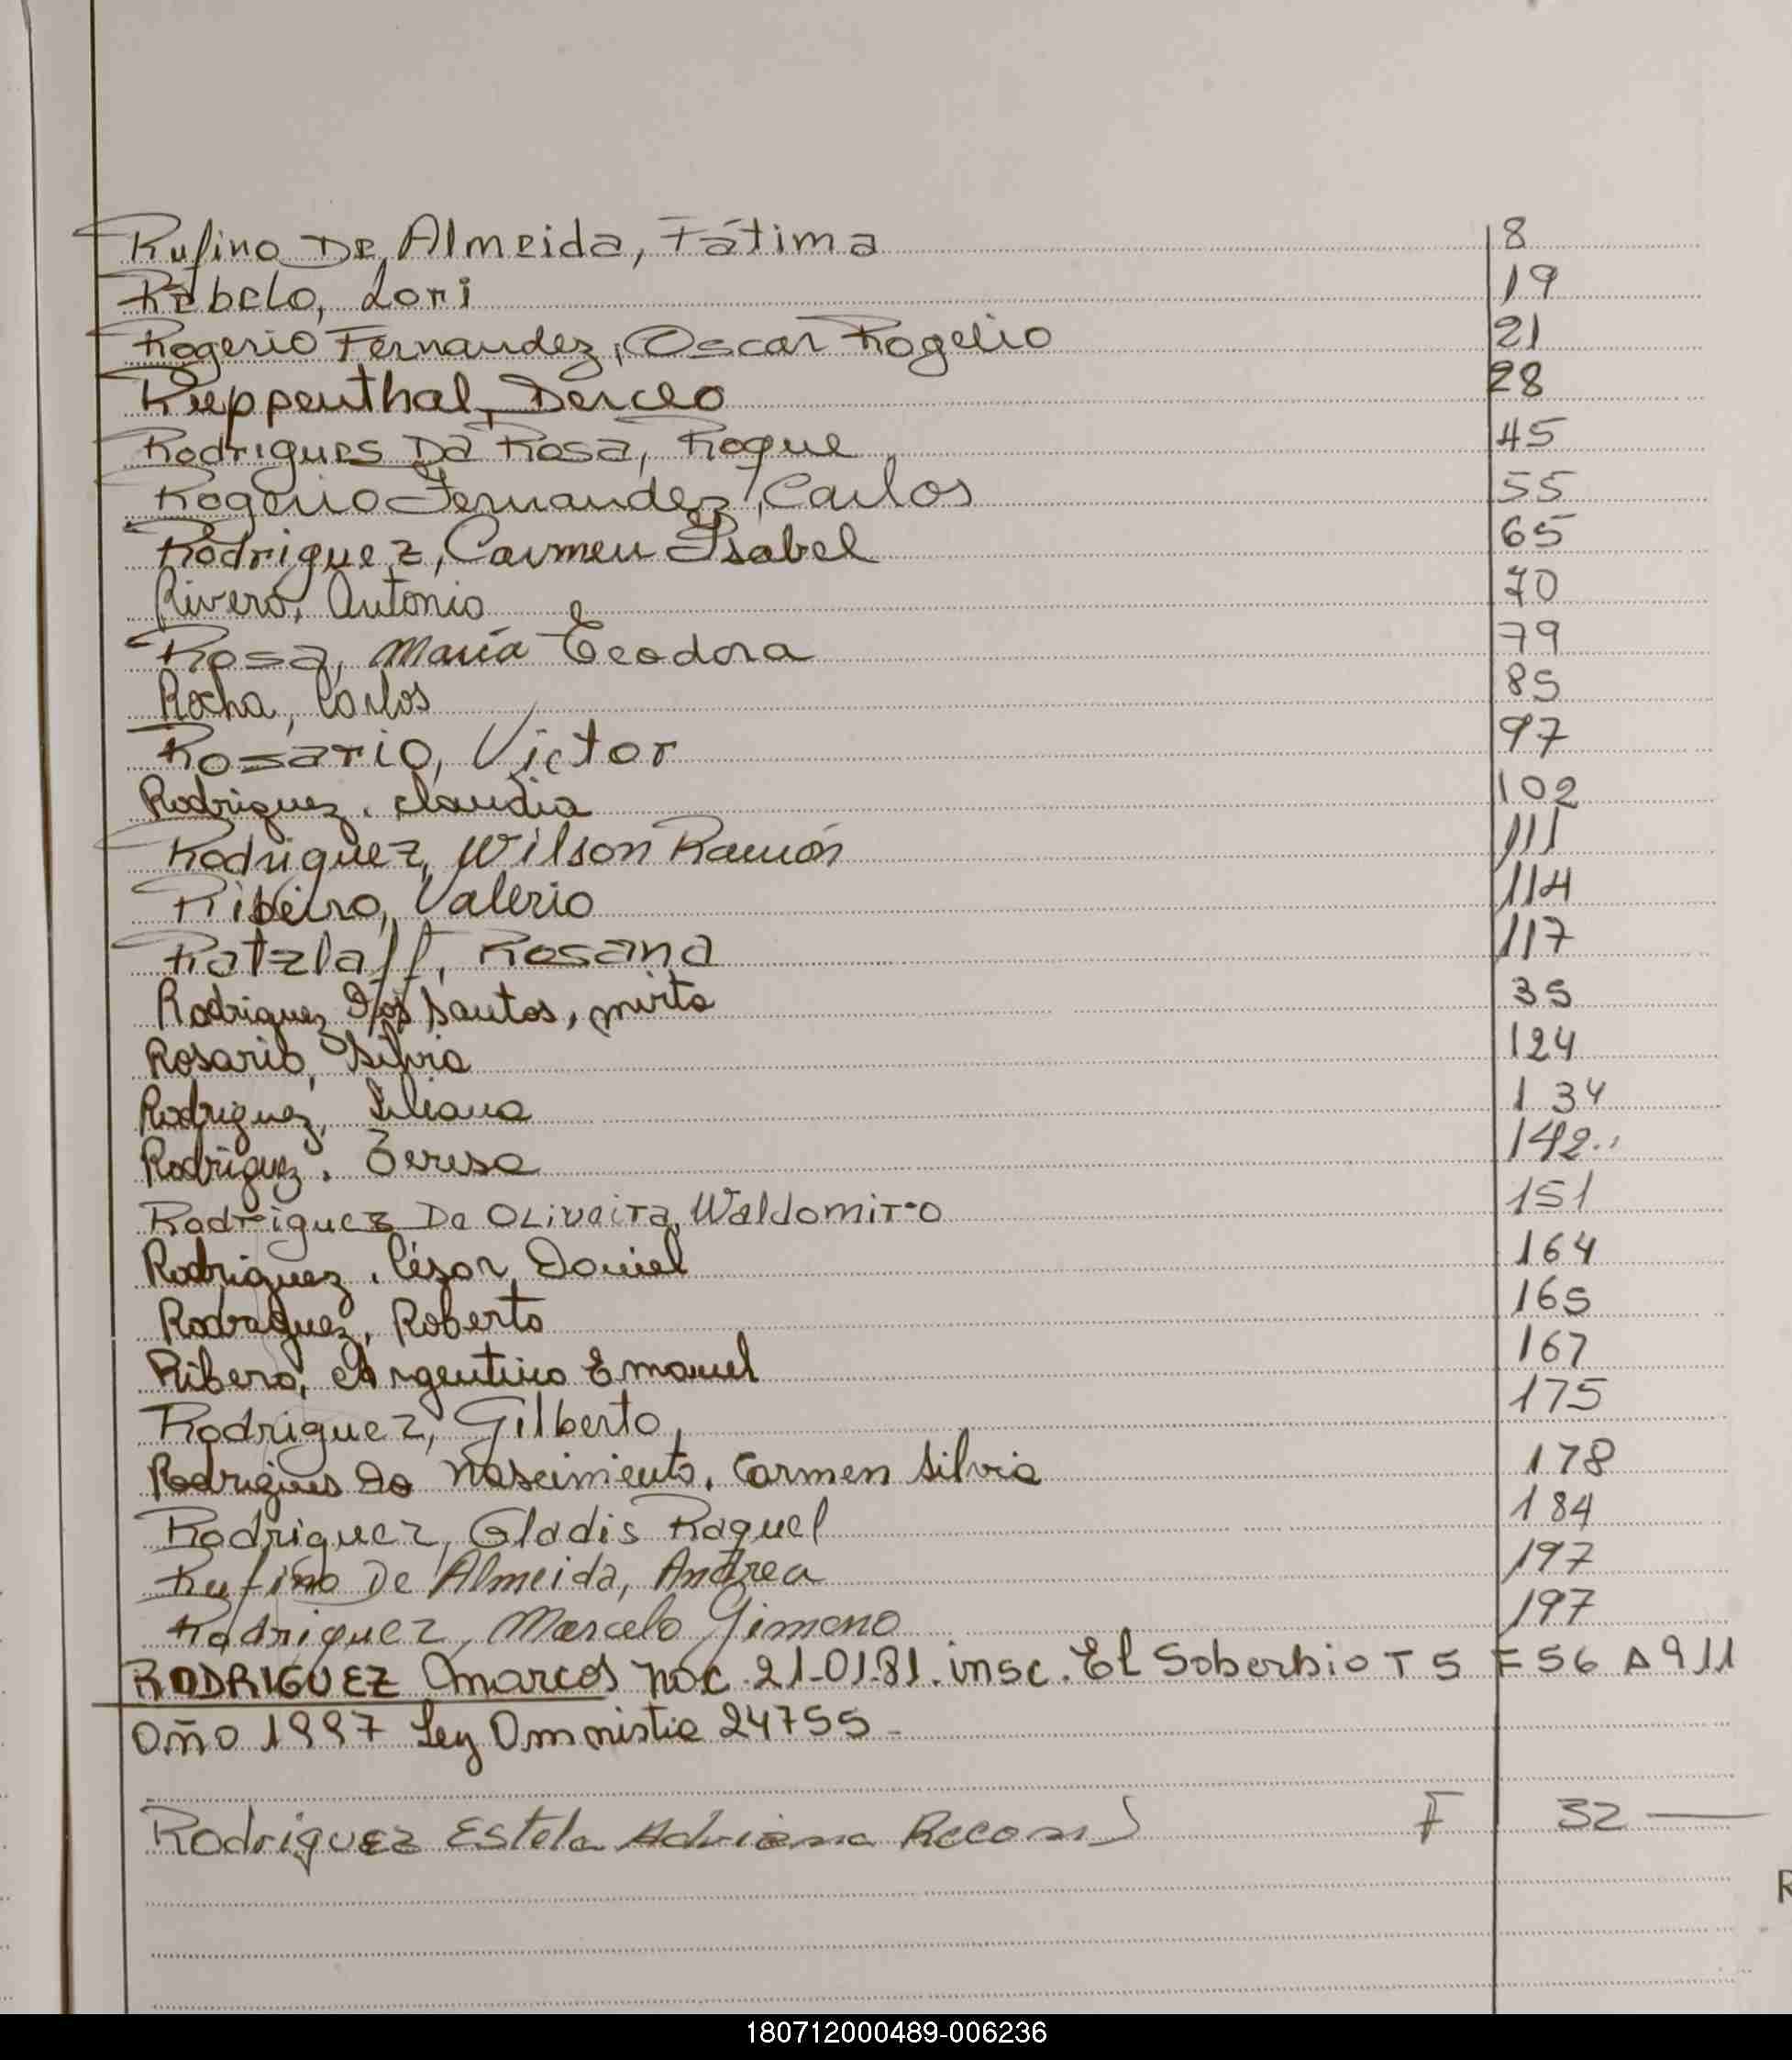 Rufino De Almeida, Fátima 8
Rebelo, Lori 19
Rogerio Fernandez, Oscar Rogelio 21
Rieppenthal, Derceo 28
Rodrigues Da Rosa, Roque 45
Rogerio Fernandez, Carlos 55
Rodriguez, Carmen Isabel 65
Rivero, Antonio 70
Rosa, María Teodora 79
Rocha, Carlos 85
Rosario, Victor 97
Rodriguez, Claudia 102
Rodriguez, Wilson Ramón 111
Ribeiro, Valerio 114
Ratzlaff, Rosana 117
Rodriguez Dos Santos, Mirta 35
Rosario, Silvia 124
Rodriguez, Liliana 134
Rodriguez, Teresa 142
Rodriguez De Oliveira, Waldomiro 151
Rodriguez, César Daniel 164
Rodraguez, Roberto 165
Ribero, Argentino Emanuel 167
Rodriguez, Gilberto 175
Rodrigues Do Nascimiento, Carmen Silvia 178
Rodriguez, Gladis Raquel 184
Rufino De Almeida, Andrea 197
Rodriguez, Marcelo Gimeno 197
RODRIGUEZ Marcos nac. 21-01-81. insc. El Soberbio T 5 F 56 A 911
Año 1997 Ley Amnistia 24755-
Rodriguez Estela Adriana Recon) F 32
R
180712000489-006236